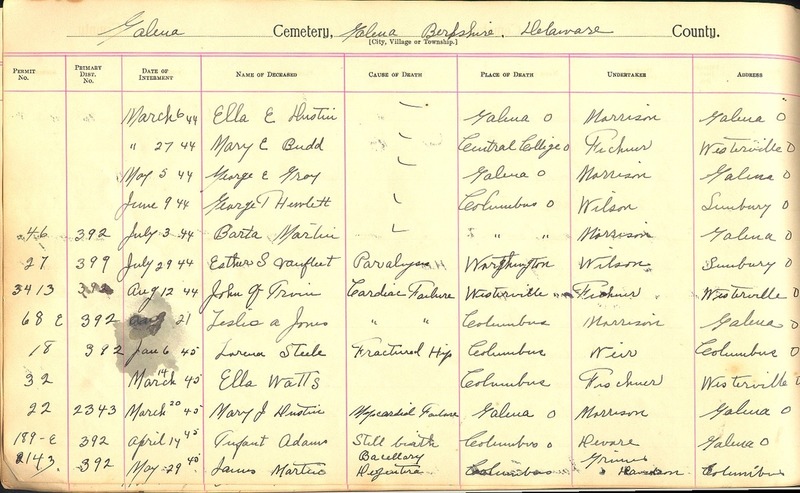 Galena Cemetery, Galena Berkshire. Delaware County.
[City, Village or Township.]
Permit No. Primary Dist. No. Date of Interment Name of Deceased Cause of Death Place of Death Undertaker Address
March 6 44 Ella E Dustin Galena O Morrison Galena O
" 27 44 Mary E Budd Central College O Westerville O
May 5 44 George E Gray Galena O Morrison Galena O
June 9 44 George T Hewlett Columbus O Wilson Sunbury O
46 392 July 3 44 Barta Martin " " Morrison Galena O
27 399 July 29 44 Esther S Vanfleet Paralysis Worthington Wilson Sunbury O
3413 392 Aug 12 44 John Irvin Cardiac Failure Westerville " Westerville O
68 E 392 Aug 21 Leslie A Jones " " Columbus Morrison Galena O
18 392 Jan 6 45 Lorena Steele Fractured Hip Columbus Weir Columbus O
32 March 14 45 Ella Watts Columbus Westerville O
22 2343 March 20 45 Mary J Dustin Myocardial Failure Galena O Morrison Galena O
189-E 392 April 14 45 Infant Adams Still birth Columbus O Devore Galena O
2143. 392 May 29 45 James Martin Bacillary Columbus Columbus